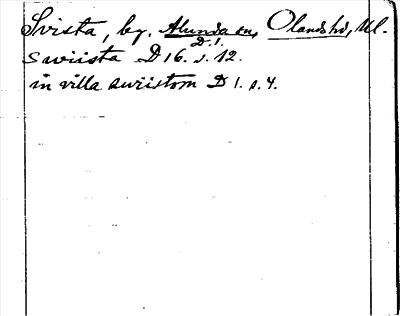 Svista, by. Alunda sn, Olands hd, Ul.
D. 1.
Swiista D 16. s. 12.
in villa swiistom D 1. s. 4.